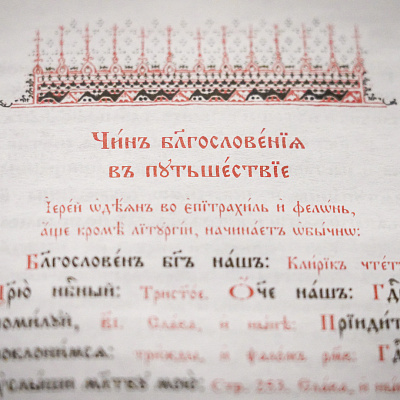 Чи́нъ бл҃гослове́нїѧ
въ пꙋтьше́ствїе
І҆ере́й ѡ҆дѣ́ѧнъ во є҆пїтрахи́ль и҆ фело́нь,
а҆́ще кромѣ̀ лїтꙋргі́и, начина́етъ ѡ҆бы́чнѡ:
Бл҃гослове́нъ бг҃ъ на́шъ: Кли́рїкъ чте́т
Цр҃ю̀ нбⷭ҇ный: Трист҃о́е. Ѻ҆́ч҃е на́шъ: Гдⷭ҇
поми́лꙋй, Сла́ва, и҆ ны́нѣ: Прїиди́т
поклони́мсѧ: три́жды, и҆ ѱало́мъ рм҃в: Гдⷭ҇
ᲂу҆слы́ши мл҃твꙋ мою̀: Стр. Сла́ва, и҆ ны